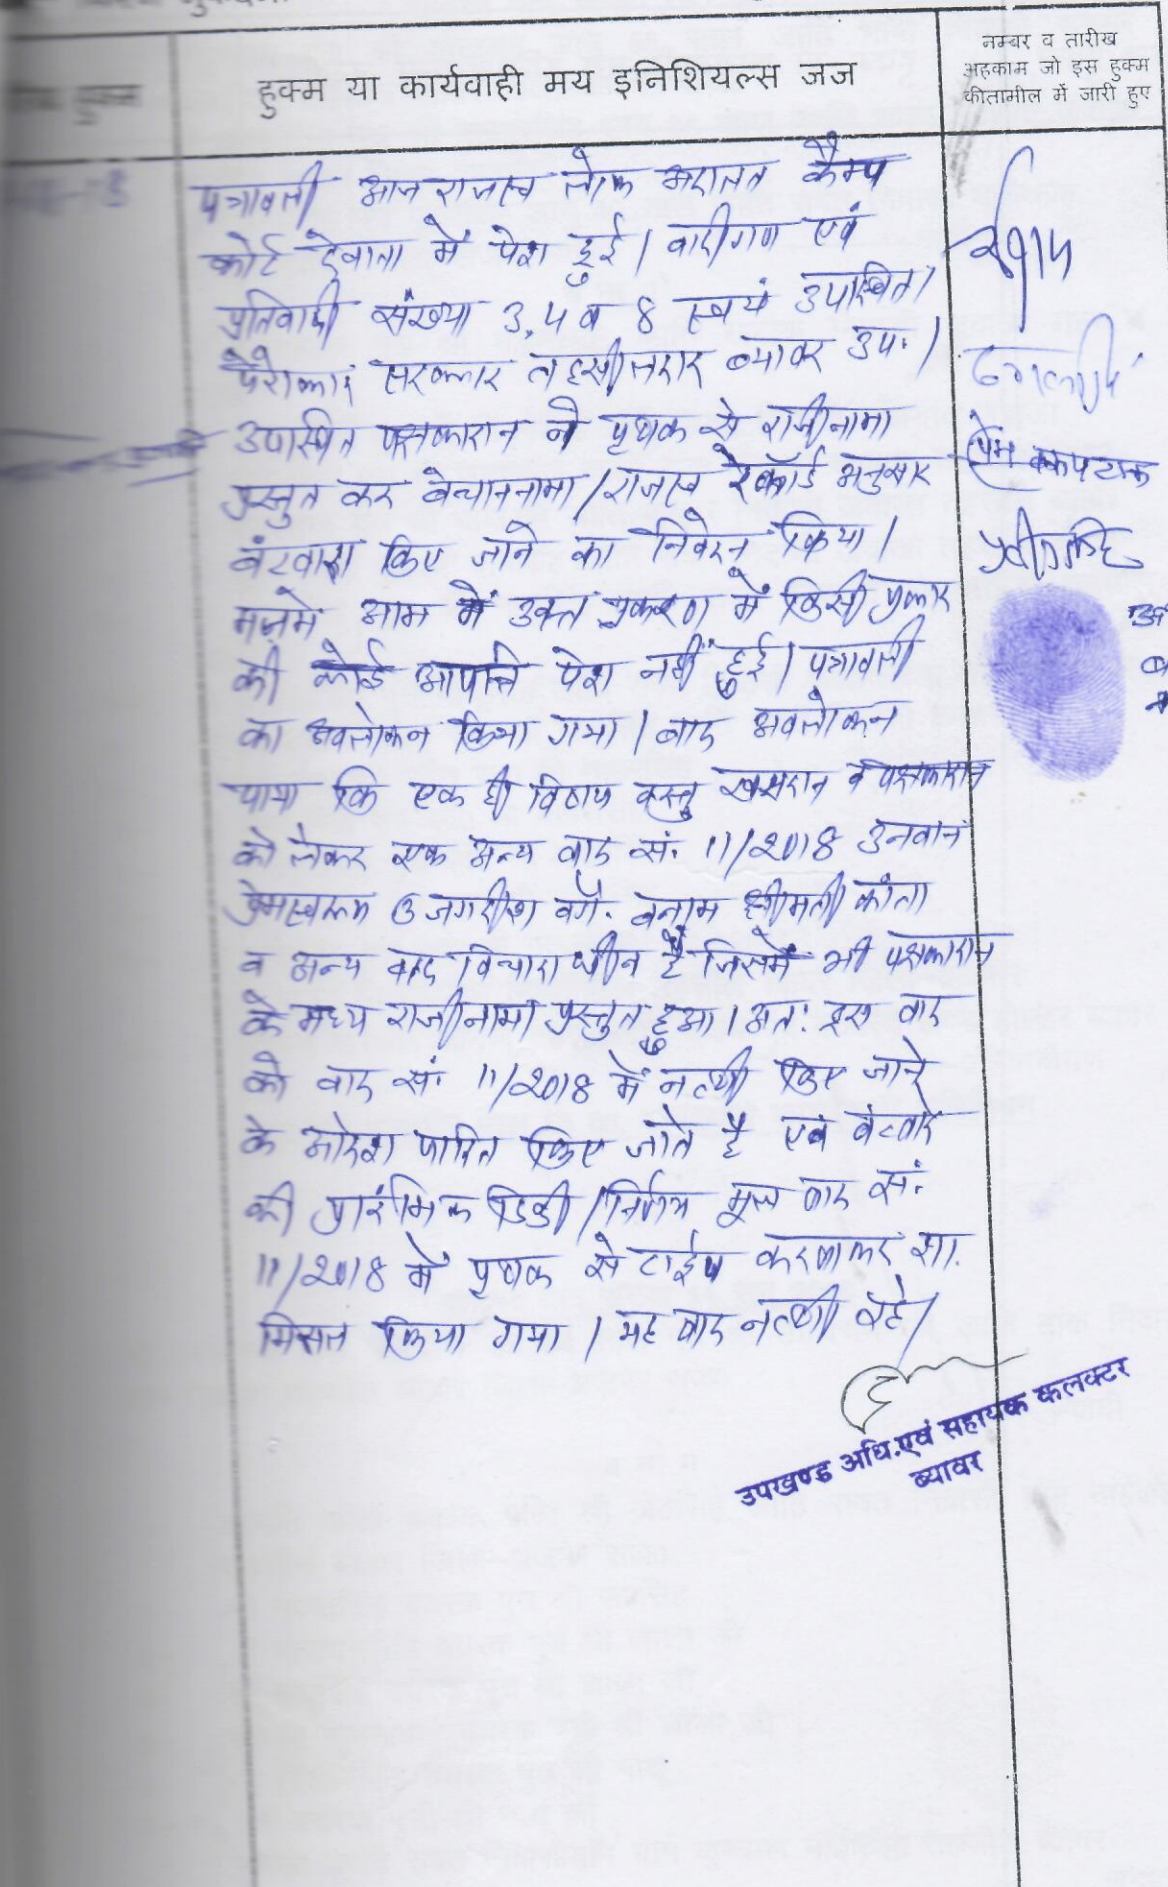 हुक्म या कार्यवाही मय इनिशियल्स जज
नम्बर व तारीख
अहकाम जो इस हुक्म
कीतामील में जारी हुए
पत्रावली आज राजस्व लोक अदालत कैम्प
कोर्ट देवाता में पेश हुई। वादीगण एवं
प्रतिवादी संख्या 3, 4 व 8 स्वयं उपस्थित।
पैरोकार सरकार तहसीलदार ब्यावर उप.।
उपस्थित पक्षकारान ने पृथक से राजीनामा
प्रस्तुत कर बेचाननामा/राजस्व रेकॉर्ड अनुसार
बंटवारा किए जाने का निवेदन किया।
मजमे आम में उक्त प्रकरण में किसी प्रकार
की कोई आपत्ति पेश नहीं हुई। पत्रावली
का अवलोकन किया गया। बाद अवलोकन
पाया कि एक ही विषय वस्तु खसरान व पक्षकारान
को लेकर एक अन्य वाद सं. 11/2018 उनवान
प्रेमस्वरूप जगदीश वगै. बनाम श्रीमती कांता
व अन्य वाद विचाराधीन है जिसमें भी पक्षकारान
के मध्य राजीनामा प्रस्तुत हुआ। अत: इस वाद
को वाद सं. 11/2018 में नत्थी किए जाने
के आदेश पारित किए जाते है एवं बंटवारे
की प्रारंभिक डिक्री/निर्णय मूल वाद सं.
11/2018 में पृथक से टाईप करवाकर शा.
मिसल किया गया। यह वाद नत्थी रहे।
उपखण्ड अधि.एवं सहायक कलक्टर
ब्यावर